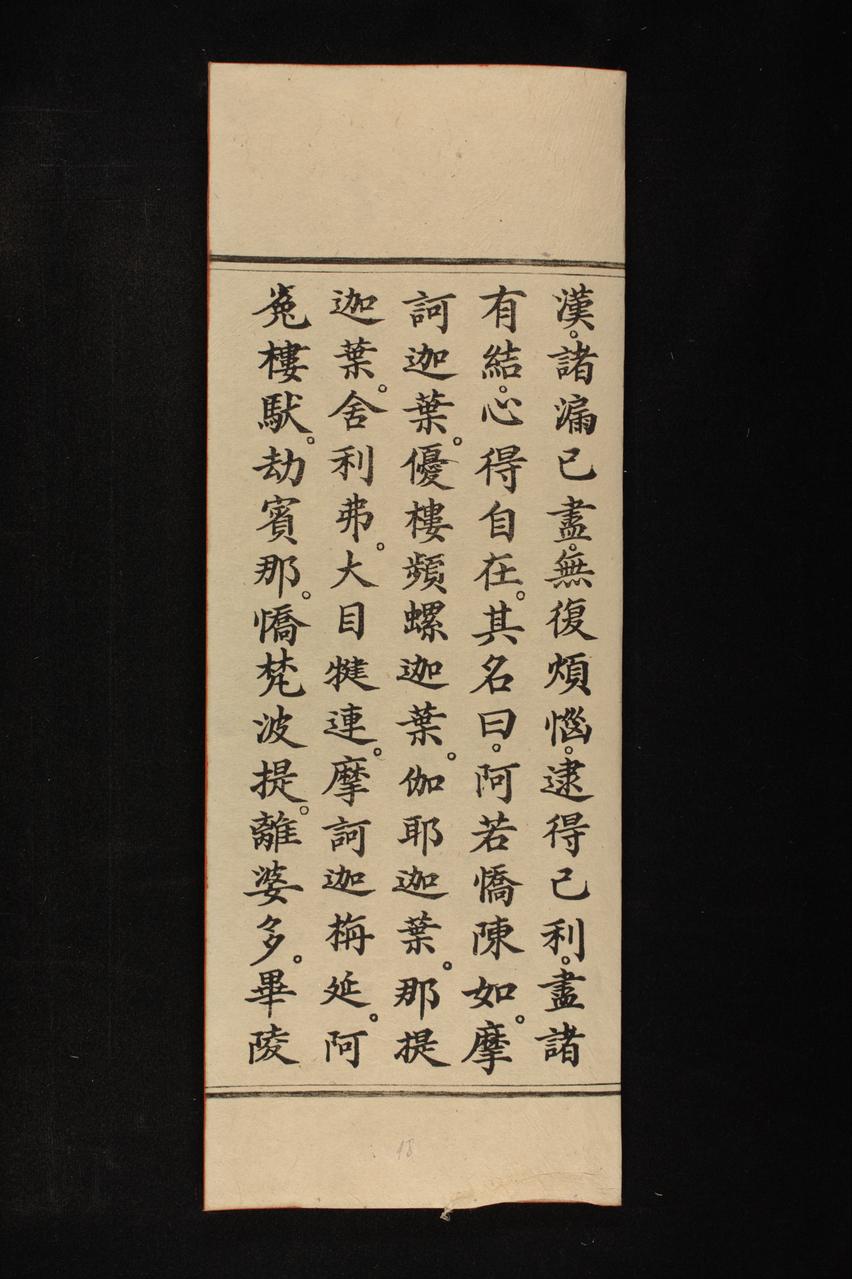 漢。諸漏已盡。無復煩惱。逮得己利。盡諸
有結。心得自在。其名曰。阿若憍陳如。摩
訶迦葉。優樓頻螺迦葉。伽耶迦葉。那提
迦葉。舍利弗。大目犍連。摩訶迦栴延。阿
㝹樓馱。劫賓那。憍梵波提。離婆多。畢陵
18